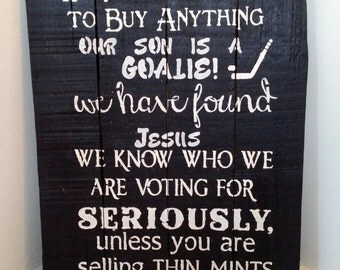 to Buy Anything
our son is a
GOALIE!
we have found
Jesus
WE KNOW WHO WE
ARE VOTING FOR
SERIOUSLY,
unless you are
selling THIN MINTS